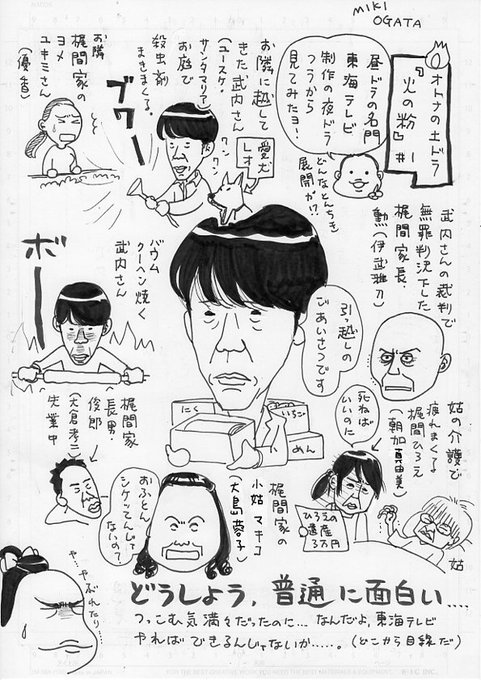 MIKI
OGATA
オトナの土ドラ
『火の粉』#1
昼ドラの名門
東海テレビ
制作の夜ドラ
つうから
見てみたヨ!
どんなとんちき
展開が!?
お隣に越して
きた武内さん
(ユースケ・
サンタマリア)
お庭で
殺虫剤
まきまくる。
ブワー
ワン
ワン
愛犬
レオ
お隣
梶間家の
ヨメ
ユキミさん
(優香)
武内さんの裁判で
無罪判決下した
梶間家長・
勲(伊武雅刀)
引っ越しの
ごあいさつです
バウム
クーヘン焼く
武内さん
ボー
にく
いちご
めん
姑の介護で
疲れまくる
梶間ひろえ
(朝加真由美)
死ねば
いいのに
ひろえの
遺産
3万円
姑
梶間家
長男・
俊郎
(大倉孝二)
失業中
梶間家の
小姑 マキコ
(大島蓉子)
おふとん
シケッてんじ
ないの?
や…やぶれたり…
どうしよう,普通に面白い....
つっこむ気満々だったのに… なんだよ,東海テレビ
やればできるんじゃないか……。(どこから目線だ)